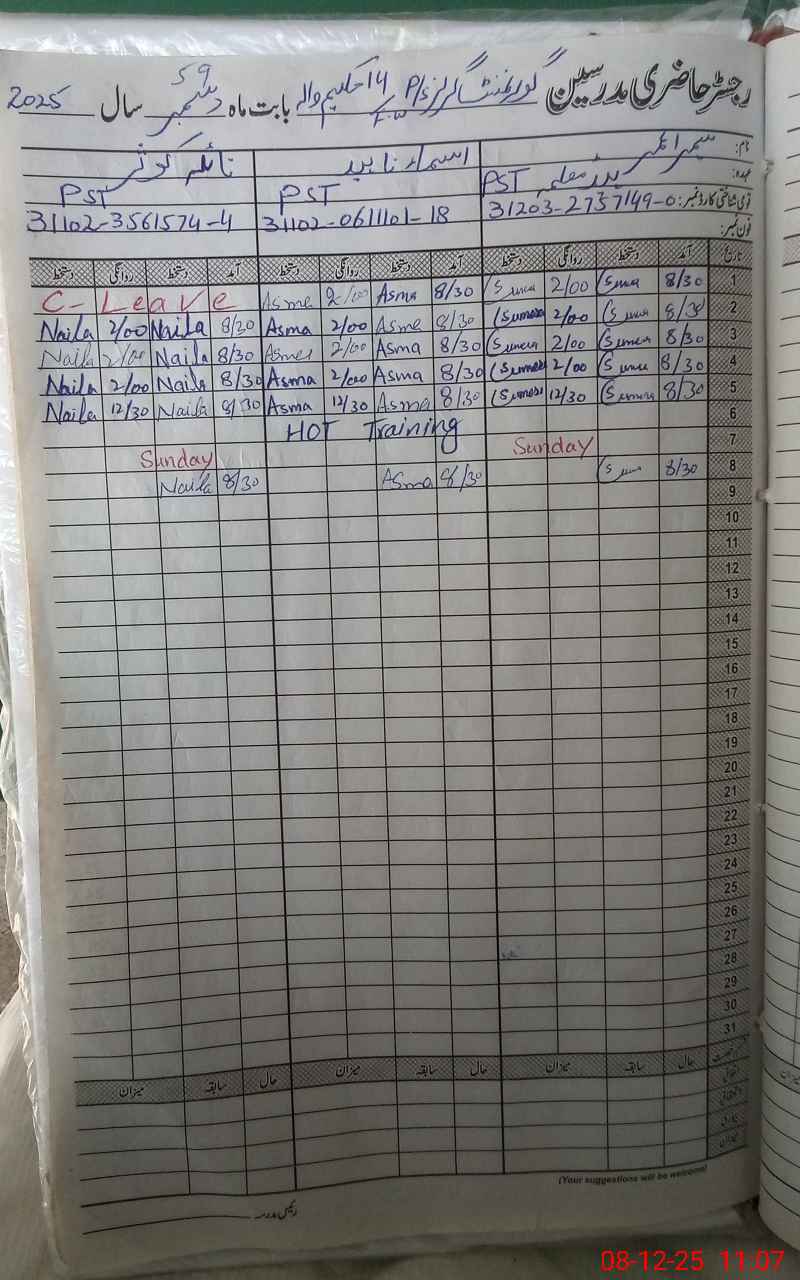 رجسٹر حاضری مدرسین گورنمنٹ گرلز P/S 14 حکیم والہ بابت ماہ دسمبر سال 2025
59
نام: اسماء ناہید نائلہ کوثر
عہدہ: PST PST PST
قومی شناختی کارڈ نمبر: 31203-2737149-0 31102-0611101-18 31102-3561574-4
فون نمبر:
تاریخ آمد دستخط روانگی دستخط آمد دستخط روانگی دستخط آمد دستخط روانگی دستخط
1 8/30 2/00 8/30 Asma 2/00 Asma C-Leave
2 8/30 2/00 8/30 Asma 2/00 Asma 8/30 Naila 2/00 Naila
3 8/30 2/00 8/30 Asma 2/00 Asma 8/30 Naila 2/00 Naila
4 8/30 2/00 8/30 Asma 2/00 Asma 8/30 Naila 2/00 Naila
5 8/30 12/30 8/30 Asma 12/30 Asma 8/30 Naila 12/30 Naila
6 HOT Training
7 Sunday Sunday
8 8/30 8/30 Asma 8/30 Naila
9
10
11
12
13
14
15
16
17
18
19
20
21
22
23
24
25
26
27
28
29
30
31
حال سابقہ میزان حال سابقہ میزان حال سابقہ میزان
اتفاقی
میزان
(Your suggestions will be welcome)
رئیس مدرسہ
08-12-25 11:07